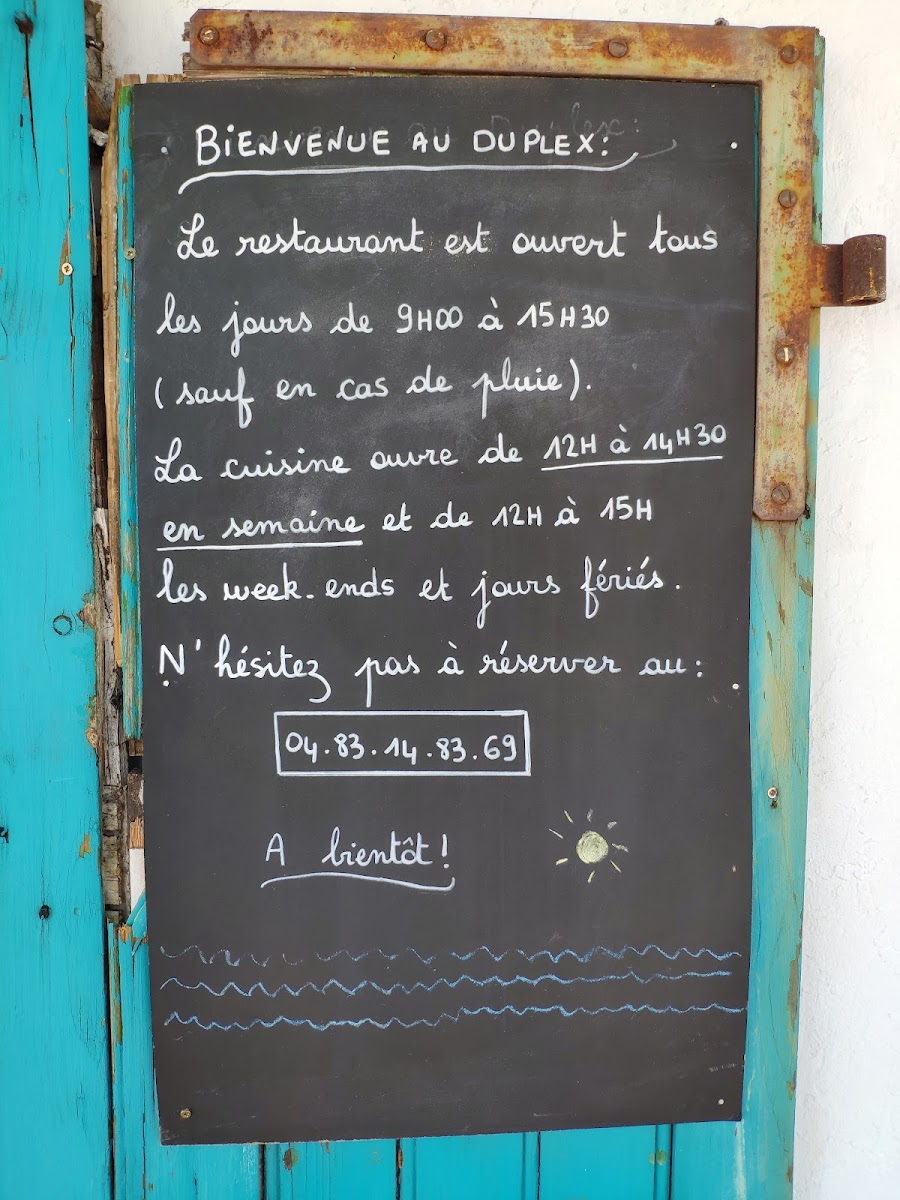 BIENVENUE AU DUPLEX:
Le restaurant est ouvert tous
les jours de 9H00 à 15H30
(sauf en cas de pluie).
La cuisine ouvre de 12H à 14H30
en semaine et de 12H à 15H
les week-ends et jours fériés.
N'hésitez pas à réserver au:
04.83.14.83.69
A bientôt!